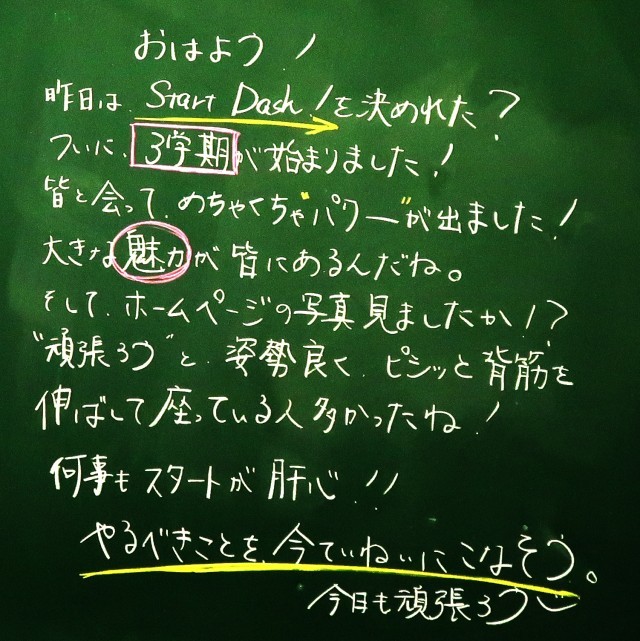 おはよう！
昨日は、Start Dash！を決めれた？
ついに、3学期が始まりました！
皆と会って、めちゃくちゃ"パワー"が出ました！
大きな魅力が皆にあるんだね。
そして、ホームページの写真見ましたか！？
"頑張ろう"と、姿勢良く、ピシッと背筋を
伸ばして座っている人多かったね！
何事もスタートが肝心！！
やるべきことを、今ていねいにこなそう。
今日も頑張ろう